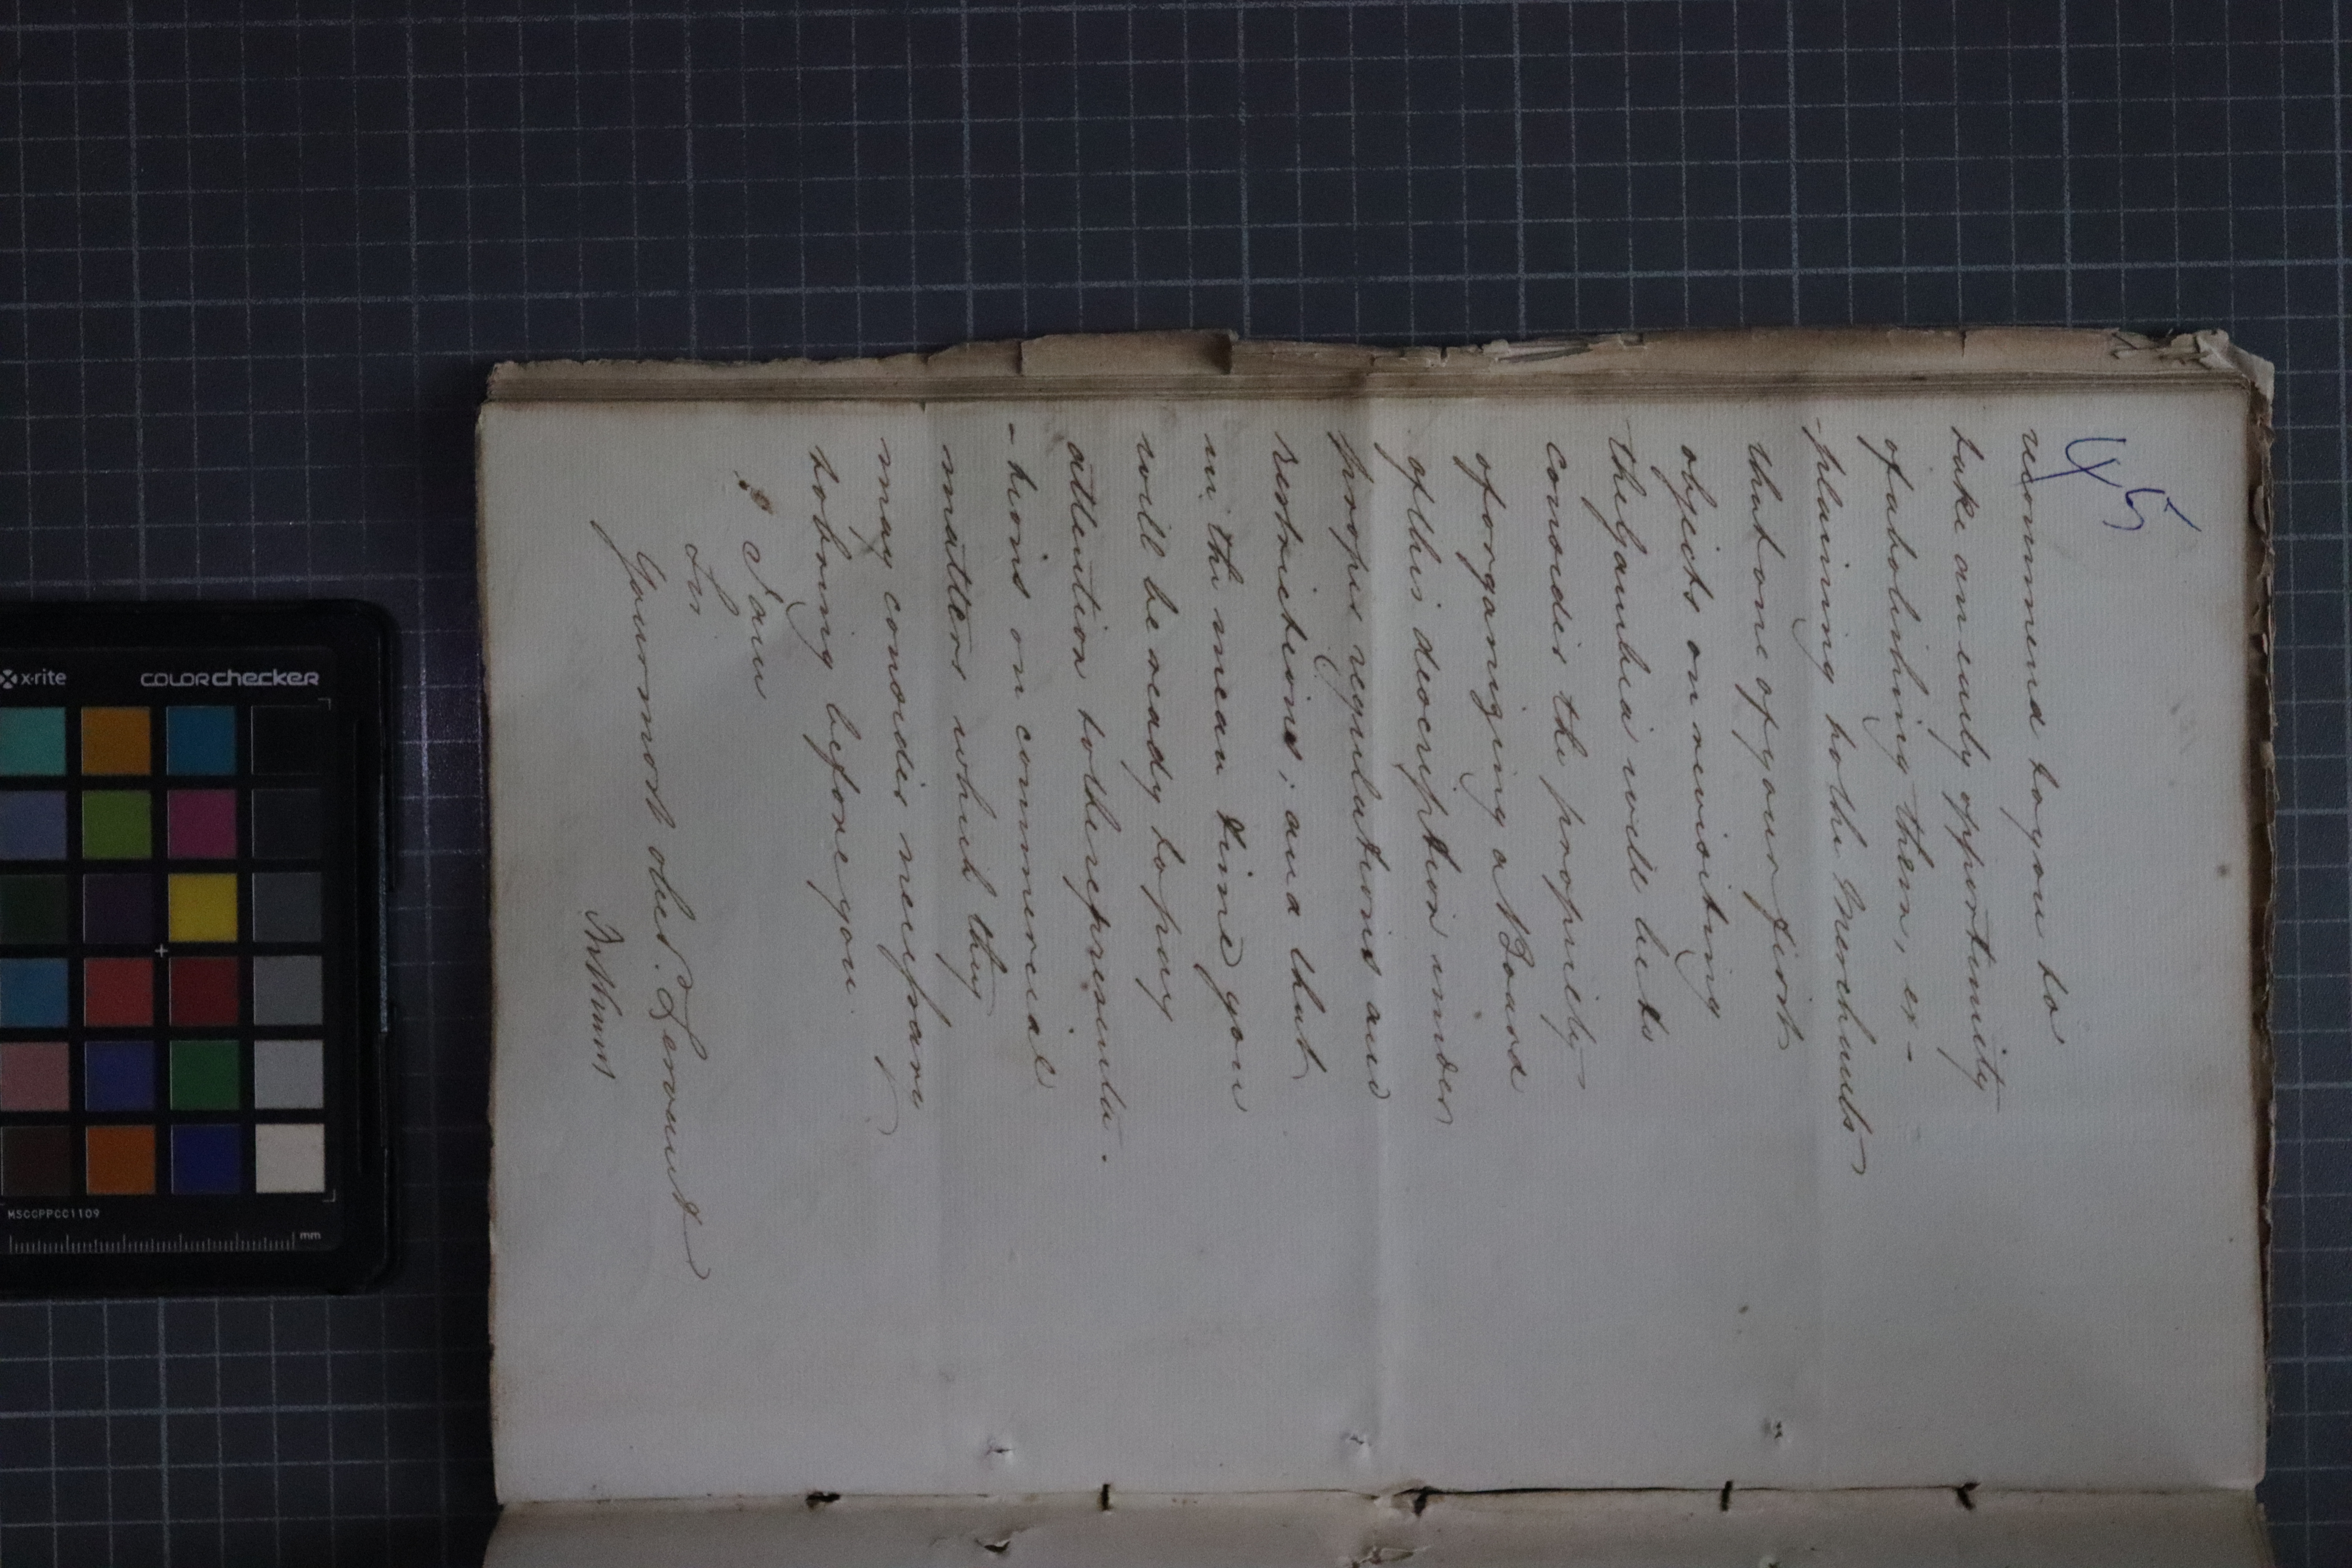 45
recommend to you to
take an early opportunity
of abolishing them, ex-
-plaining to the Merchants
that one of your first
objects on revisiting
the Gambia will be to
consider the propriety
of organizing a Board
of this description under
proper regulations and
restrictions; and that
in the mean time you
will be ready to pay
attention to the representa-
-tions on commercial
matters which they
may consider necessary
to bring before you
I am
Sir
Your most obed. Servant
Bathurst
x-rite colorchecker
MSCCPPCC1109
mm